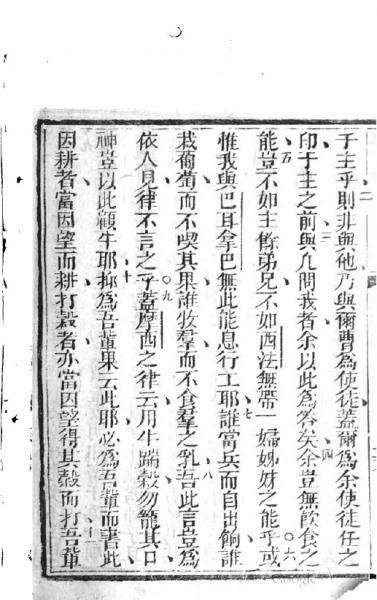 子主乎則非與他乃與爾曹為使徒蓋爾為余使徒任之
印于主之前與凡問我者余以此為答矣余豈無飲食之
能豈不如主餘弟兄不如西法無帶一婦姊妹之能乎或
惟我與巴耳拿巴無此能息行工耶誰當兵而自出餉誰
栽葡萄而不喫其果誰牧羣而不食羣之乳吾此言豈為
依人見律不言之乎蓋摩西之律云用牛踹穀勿籠其口
神豈以此顧牛耶抑為吾輩果云此耶必為吾輩而書此
因耕者當因望而耕打穀者亦當因望得其穀而打吾輩